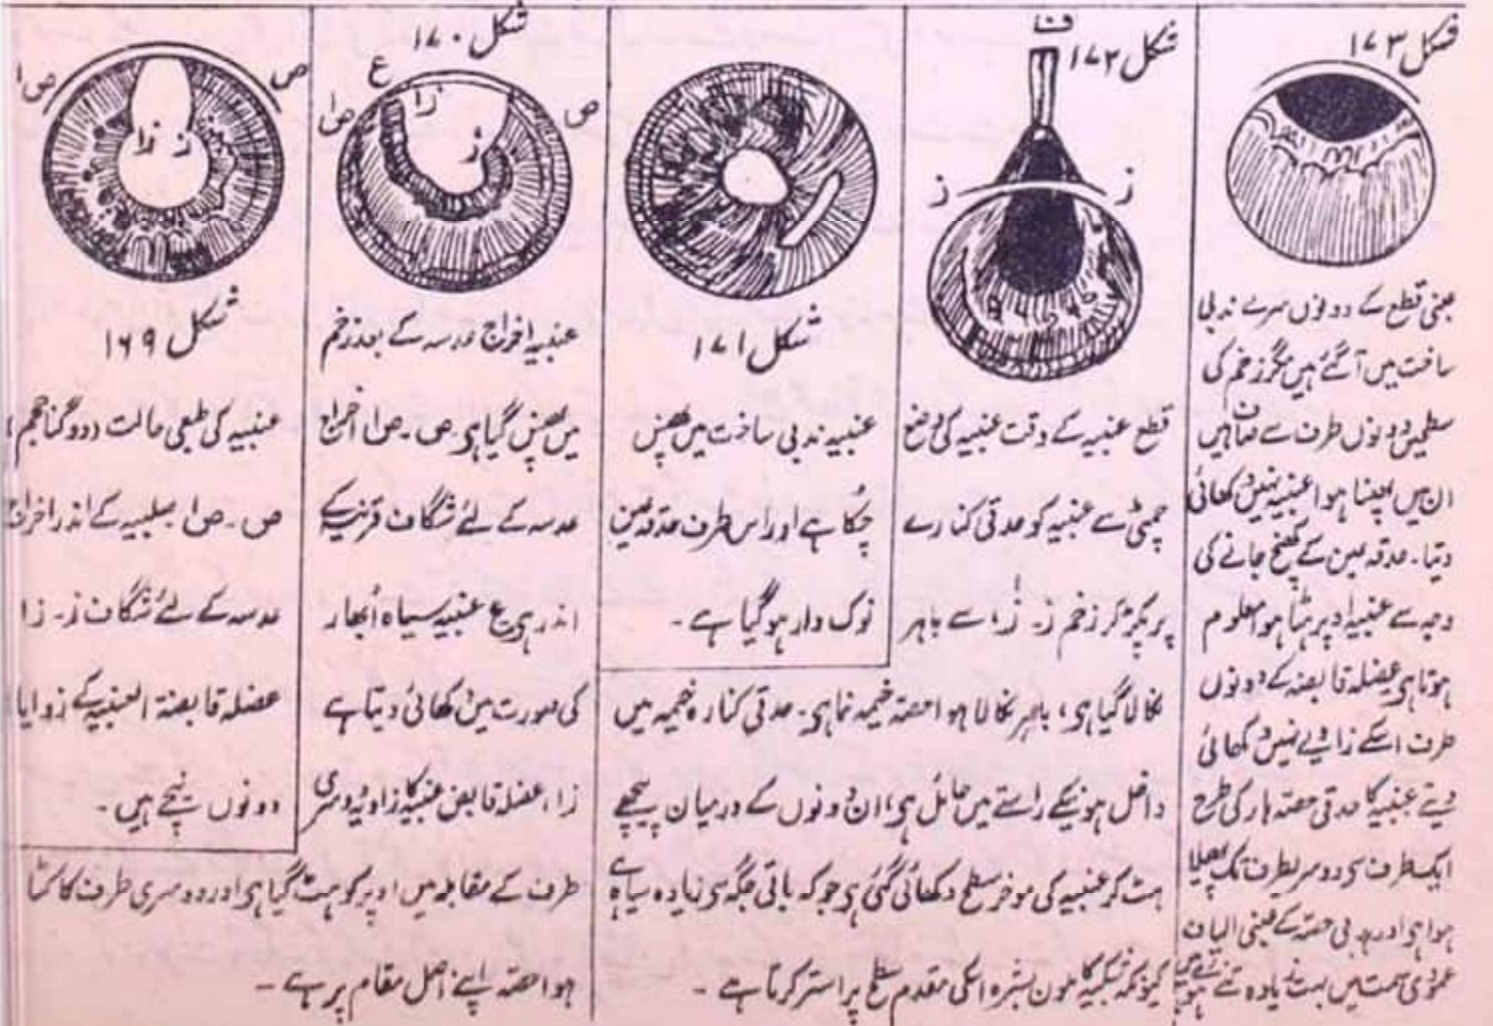 شکل ۱۷۳
جنبی قطع کے دونوں سرے ندبی
ساخت میں آگئے ہیں مگر زخم کی
سطحیں دونوں طرف سے
ان میں پھنسا ہوا عنبیہ نہیں دکھائی
دیتا۔ حدقہ عین کے کھنچ جانے کی
وجہ سے عنبیہ اوپر ہٹا ہوا معلوم
ہوتا ہی عضلہ قابضہ کے دونوں
طرف اسکے زاویے نہیں دکھائی
دیتے عنبیہ کا حدقی حصہ ہار کی طرح
ایک طرف سی دوسریطرف تک پھیلا
ہوا ہی اور ہدبی حصہ کے عینی الیاف
عمودی سمت میں بہت زیادہ تنے ہوئے ہیں
شکل ۱۷۲
ز
ز
قطع عنبیہ کے وقت عنبیہ کی وضع
چمٹی سے عنبیہ کو حدقی کنارے
پر پکڑ کر زخم ز۔ زٰ، سے باہر
نکالا گیا ہی، باہر نکالا ہوا حصہ خیمہ نما ہی۔ حدقی کنارہ خیمہ میں
داخل ہونیکے راستے میں حائل ہی، ان دونوں کے درمیان پیچھے
ہٹ کر عنبیہ کی موخر سطح دکھائی گئی ہی جو کہ باقی جگہ سی زیادہ سیاہ ہے
کیونکہ شبکیہ کا ملون بشرہ اسکی مقدم سطح پر استر کرتا ہے ۔
شکل ۱۷۱
عنبیہ ندبی ساخت میں پھنس
چکا ہے اور اس طرف حدقہ عین
نوک دار ہو گیا ہے ۔
شکل ۱۷۰
ع
ص
صٰ
زا
ز
عنبیہ اخراج عدسہ کے بعد زخم
میں پھنس گیا ہی۔ ص۔ صٰ اخراج
عدسہ کے لئے شگاف قرنیہ کے
اندر ہی ع عنبیہ سیاہ اُبھار
کی صورت میں دکھائی دیتا ہے
زا، عضلہ قابض عنبیہ کا زاویہ دوسری
طرف کے مقابلہ میں اوپر کو ہٹ گیا ہی اور دوسری طرف کا کٹا
ہوا حصہ اپنے اصل مقام پر ہے ۔
ص
صا
ز
زا
شکل ۱۶۹
عنبیہ کی طبعی حالت (دوگنا حجم)
ص۔ صا صلبیہ کے اندر اخراج
عدسہ کے لئے شگاف ز۔ زا
عضلہ قابضۃ العنبیہ کے زوایا
دونوں نیچے ہیں ۔